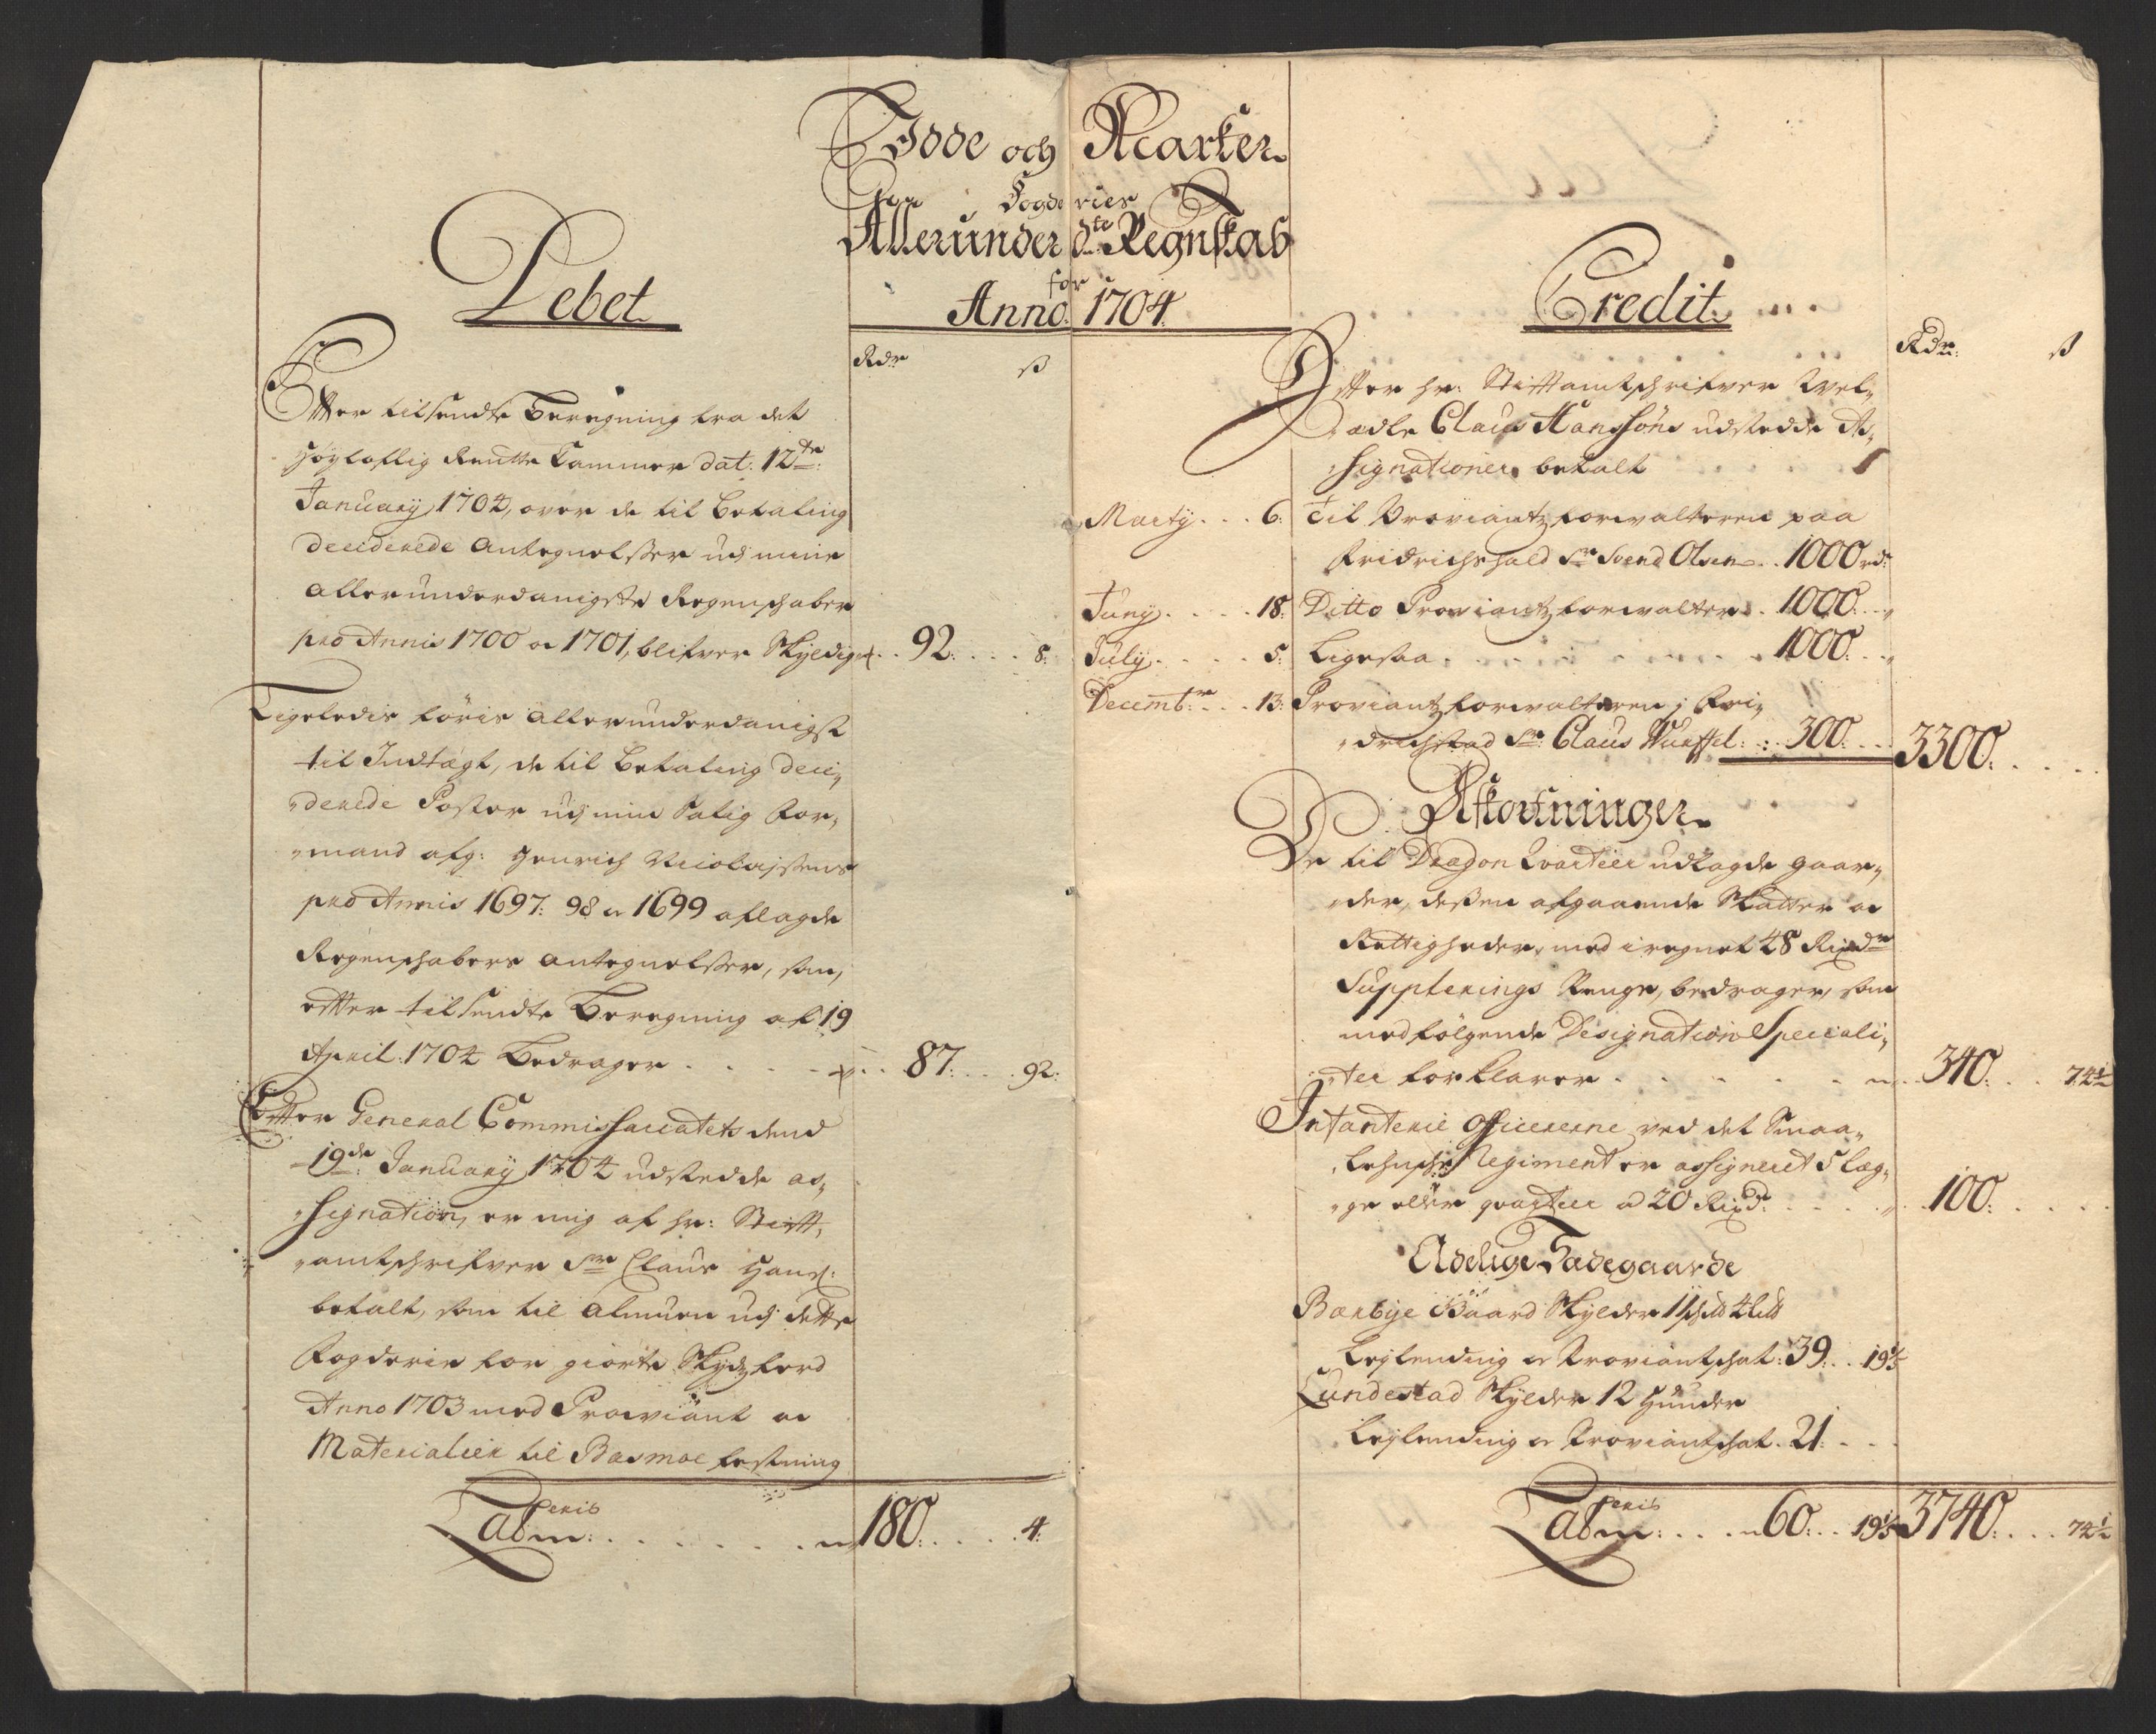 Idde och Marker
Fogderies
Allerunderd.te Regnskab
for
Anno 1704.
Debet
Rdr ß
Efter tilsendte Beregning fra det
Høyloflig Rentte Cammer dat: 12te:
January 1704, over de til Betaling
deciderede Antegnelsser udj mine
allerunderdanigste Regenschaber
pro Annis 1700 oc 1701, blifver Skyldig .. 92: .... 8:
Ligeledis føris allerunderdanigst
til Indtægt, de til Betaling deci„
„derede Poster udj min Salig For„
„mand afg: Henrich Nicolajssens
pro Annis 1697: 98 oc 1699 aflagde
Regenschabers antegnelsser, som,
efter tilsendte Beregning af 19
April: 1704 Bedrager .... 87: ... 92:
Efter General Commissariatets dend
19de: January 1704 udstedde as„
„signation, er mig af hr: Stift„
„amtschrifver Sr: Claus Hans:
betalt, som til almuen udj dette
Fogderie for giorte Skydsferd
Anno 1703 med Proviant oc
Materialier til Basmoe festning
Lateris
abm: ....... 180: .... 4:
Credit
Rdr: ß
Efter hr: Stiftamtschrifver Wel„
„ædle Claus Hanssøns udstedde As„
„signationer betalt
Marty ... 6: Til Proviantzforvalteren paa
Fridrichshald Sr Svend Olsen .. 1000 rd:
Juny .... 18: Ditto Proviantzforvalter .. 1000: ... „
July .... 5: Ligesaa ........ 1000: ... „
Decembr: ... 13: Proviantzforvalteren i Fri„
„drichstad Sr: Claus : : 300: ... 3300: ....
Afkortninger
De til Dragon Qvarteer udlagde gaar„
„der, dessen afgaaende Skatter oc
Rettigheder, med iregnet 48 Rixdr
Supplerings Penge, bedrager, som
medfølgende Designation Speciali„
„ter forklarer ...... 340: ... 74½
Infanterie Officererne ved det Smaa„
„lehnsche Regiment er assigneret 5 læg„
„ge eller qvarteer a 20 Rixd: .... 100: ....
Adelige Sædegaarde
Bærbye Gaard Skylder 11 sch℔ 4 l℔
Leylending oc Proviantschat: 39: .. 19⅕
Lundestad Skylder 12 Huuder
Leylending oc Proviantschat . 21: ...
Lateris
abm: .... 60: .. 19⅕ 3740: ... 74½